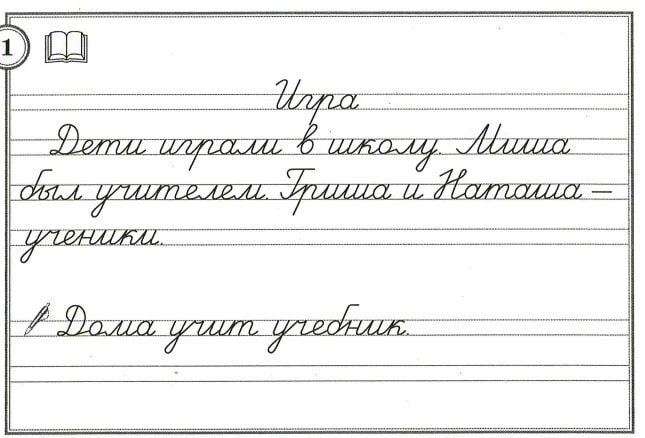 1
Игра
Дети играли в школу. Миша
был учителем. Гриша и Наташа –
ученики.
Дома учит учебник.